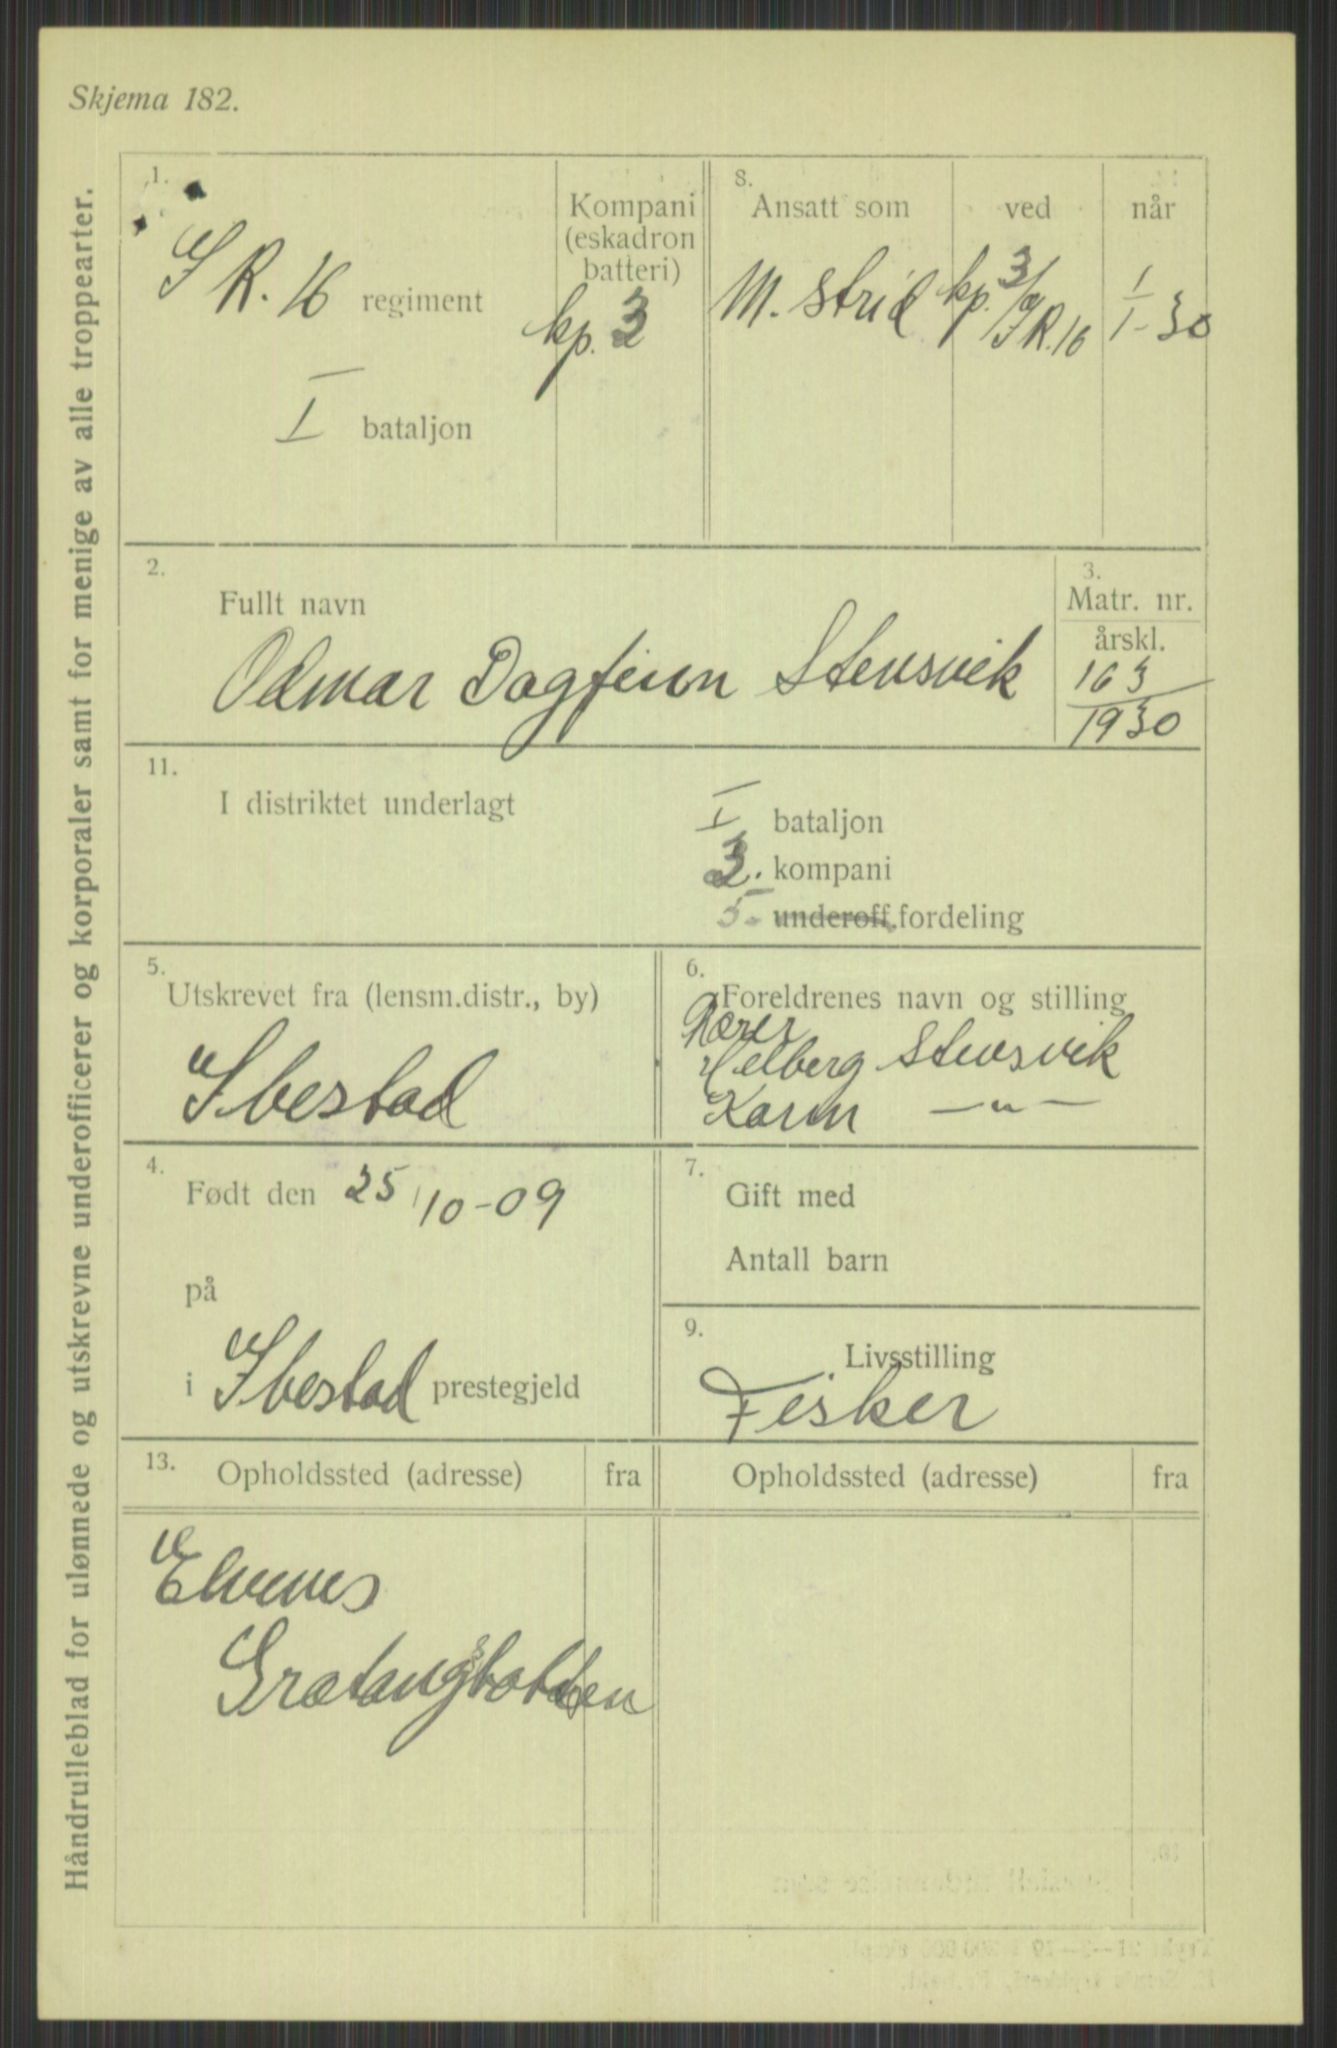 Skjema 182.
Håndrulleblad for ulønnede og utskrevne underofficerer og korporaler samt for menige av alle troppearter.
1.
I R. 16 regiment
I bataljon
Kompani
(eskadron
batteri)
kp. 3
8.
Ansatt som
ved
når
M. strid
kp. 3/
I R. 16
I/I-30
2.
Fullt navn
Odmar Dagfinn Stensvik
3.
Matr. nr.
årskl.
163
1930
11.
I distriktet underlagt
I bataljon
3. kompani
5. underoff.fordeling
5.
Utskrevet fra (lensm.distr., by)
Ibestad
6.
Foreldrenes navn og stilling
Helberg Stensvik
Karin —"—
4.
Født den 25/10-09
på
i Ibestad prestegjeld
7.
Gift med
Antall barn
9.
Livsstilling
Fisker
13.
Opholdssted (adresse)
fra
Opholdssted (adresse)
fra
Elvenes
Gratangsbotten